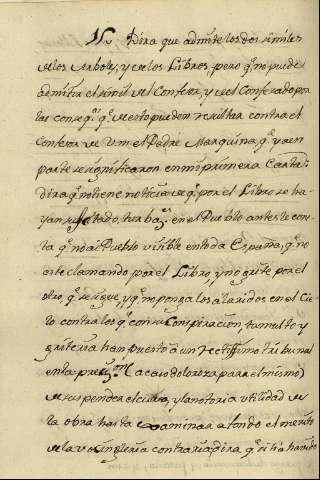 Dira que admite los dos simíles
de los Arboles, y de los Libros, pero q.e no puede
admitir el simíl del Confesor, y del Confesado por
las conseq.s q.e de esto pueden resultar contra el
Confesor de V.m. el Padre Marquina, q.e ya en
parte se significaron en mi primera Carta:
dira q.e no tiene noticia de q.e por el Libro se ha-
yan tado, turba en el Pueblo antes le cons-
ta q.e no ai Pueblo visible en toda España, q.e no
este clamando por el Libro, y no grite por el
otro, q.e se sigue, y q.e no ponga los alaridos en el Cie-
lo contra los q.e con su Conspiracion, tumulto y
griteria han puesto à un rectissimo tribunal
en la prez.on (acaso dolorosa para el mismo)
de suspender el curso, y la notoria utilidad de
la obra hasta examinar a fondo el merito
de la vozingleria contraria, dira q.e si se han